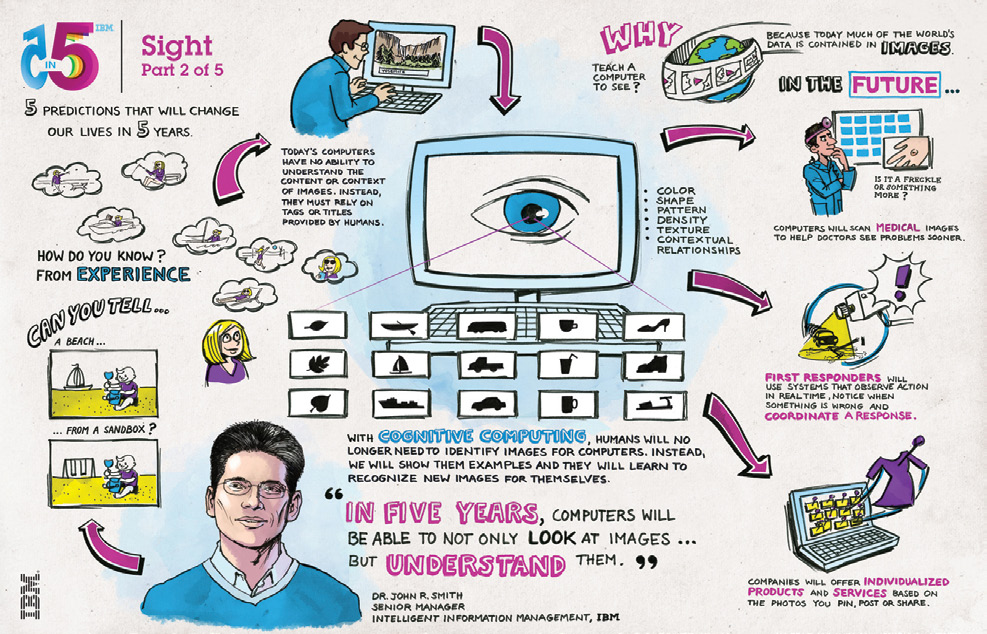 5 IN 5
IBM
Sight
Part 2 of 5
5 PREDICTIONS THAT WILL CHANGE
OUR LIVES IN 5 YEARS.
HOW DO YOU KNOW?
FROM EXPERIENCE
CAN YOU TELL...
A BEACH...
...FROM A SANDBOX?
TODAY'S COMPUTERS
HAVE NO ABILITY TO
UNDERSTAND THE
CONTENT OR CONTEXT
OF IMAGES. INSTEAD,
THEY MUST RELY ON
TAGS OR TITLES
PROVIDED BY HUMANS.
• COLOR
• SHAPE
• PATTERN
• DENSITY
• TEXTURE
• CONTEXTUAL
RELATIONSHIPS
WITH COGNITIVE COMPUTING, HUMANS WILL NO
LONGER NEED TO IDENTIFY IMAGES FOR COMPUTERS. INSTEAD,
WE WILL SHOW THEM EXAMPLES AND THEY WILL LEARN TO
RECOGNIZE NEW IMAGES FOR THEMSELVES.
“IN FIVE YEARS, COMPUTERS WILL
BE ABLE TO NOT ONLY LOOK AT IMAGES ...
BUT UNDERSTAND THEM.”
DR. JOHN R. SMITH
SENIOR MANAGER
INTELLIGENT INFORMATION MANAGEMENT, IBM
WHY
TEACH A
COMPUTER
TO SEE?
BECAUSE TODAY MUCH OF THE WORLD'S
DATA IS CONTAINED IN IMAGES.
IN THE FUTURE ...
IS IT A FRECKLE
OR SOMETHING
MORE?
COMPUTERS WILL SCAN MEDICAL IMAGES
TO HELP DOCTORS SEE PROBLEMS SOONER.
!
FIRST RESPONDERS WILL
USE SYSTEMS THAT OBSERVE ACTION
IN REAL TIME, NOTICE WHEN
SOMETHING IS WRONG AND
COORDINATE A RESPONSE.
COMPANIES WILL OFFER INDIVIDUALIZED
PRODUCTS AND SERVICES BASED ON
THE PHOTOS YOU PIN, POST OR SHARE.
IBM